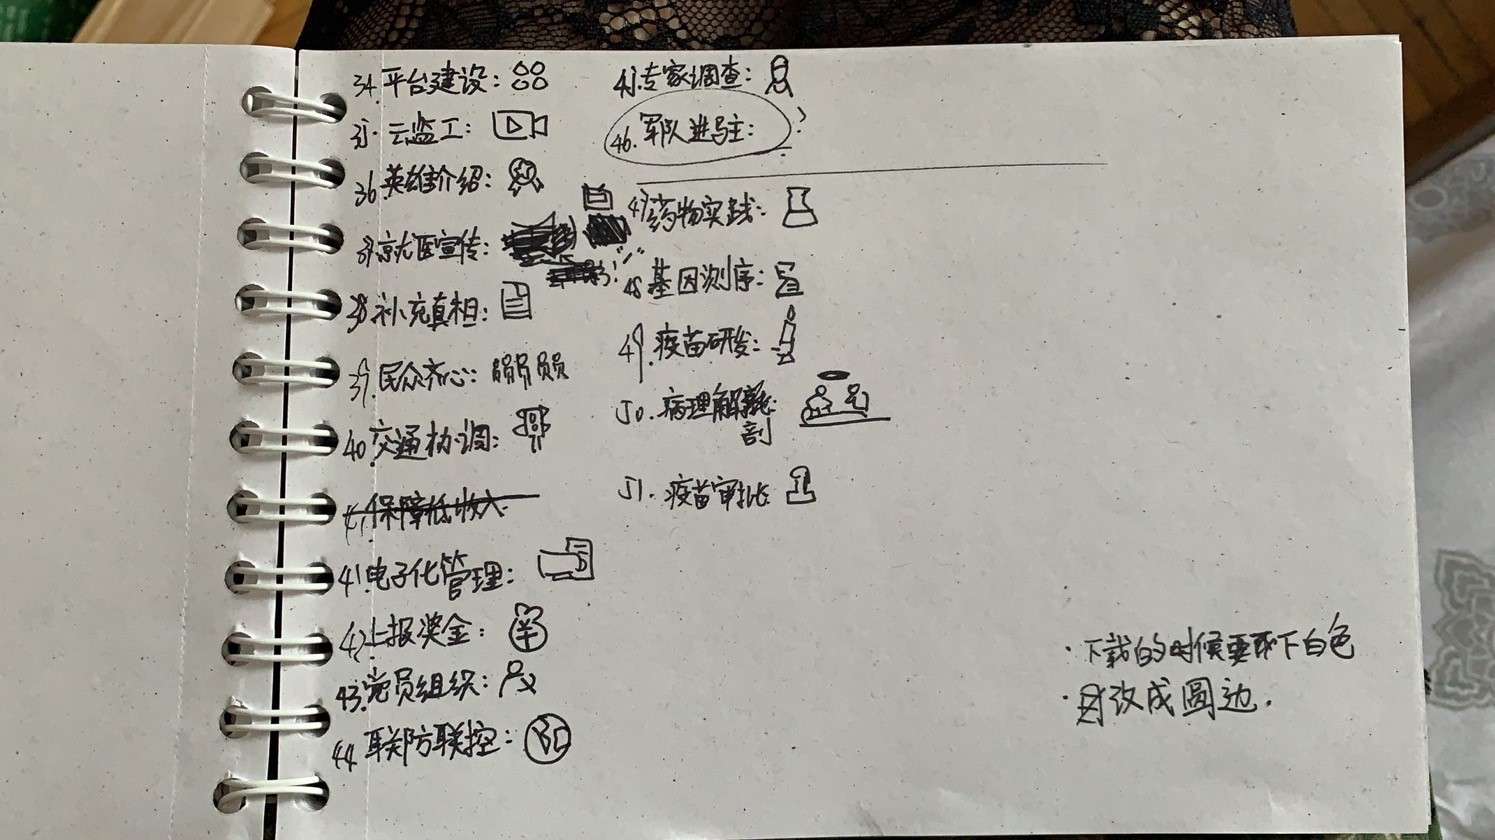 34.平台建设:
35.云监工:
36.英雄介绍:
37.就医宣传:
38.补充真相:
39.民众齐心:
40.交通协调:
41.保障低收入
41.电子化管理:
42.上报奖金:
43.党员组织:
44 联防联控:
45.专家调查:
46.军队进驻:
47药物实践:
48基因测序:
49.疫苗研发:
50.病理解剖
51.疫苗审批:
·下载的时候要取下白色
·改成圆边.